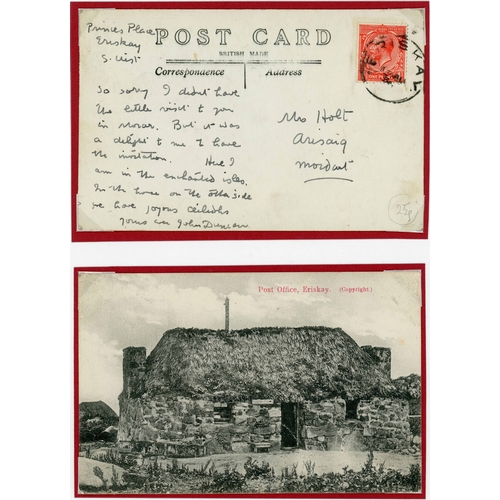 Princes Place
Eriskay
S. Uist
POST CARD
BRITISH MADE
Correspondence
Address
So sorry I didn't have
the little visit to you
in Morar. But it was
a delight to me to have
the invitation. Here I
am in the enchanted isles.
In the house on the other side
we have joyous ceilidhs
Yours ever John Duncan
Mrs Holt
Arisaig
Moidart
ONE PENNY
KAL
25p
Post Office, Eriskay. (Copyright.)